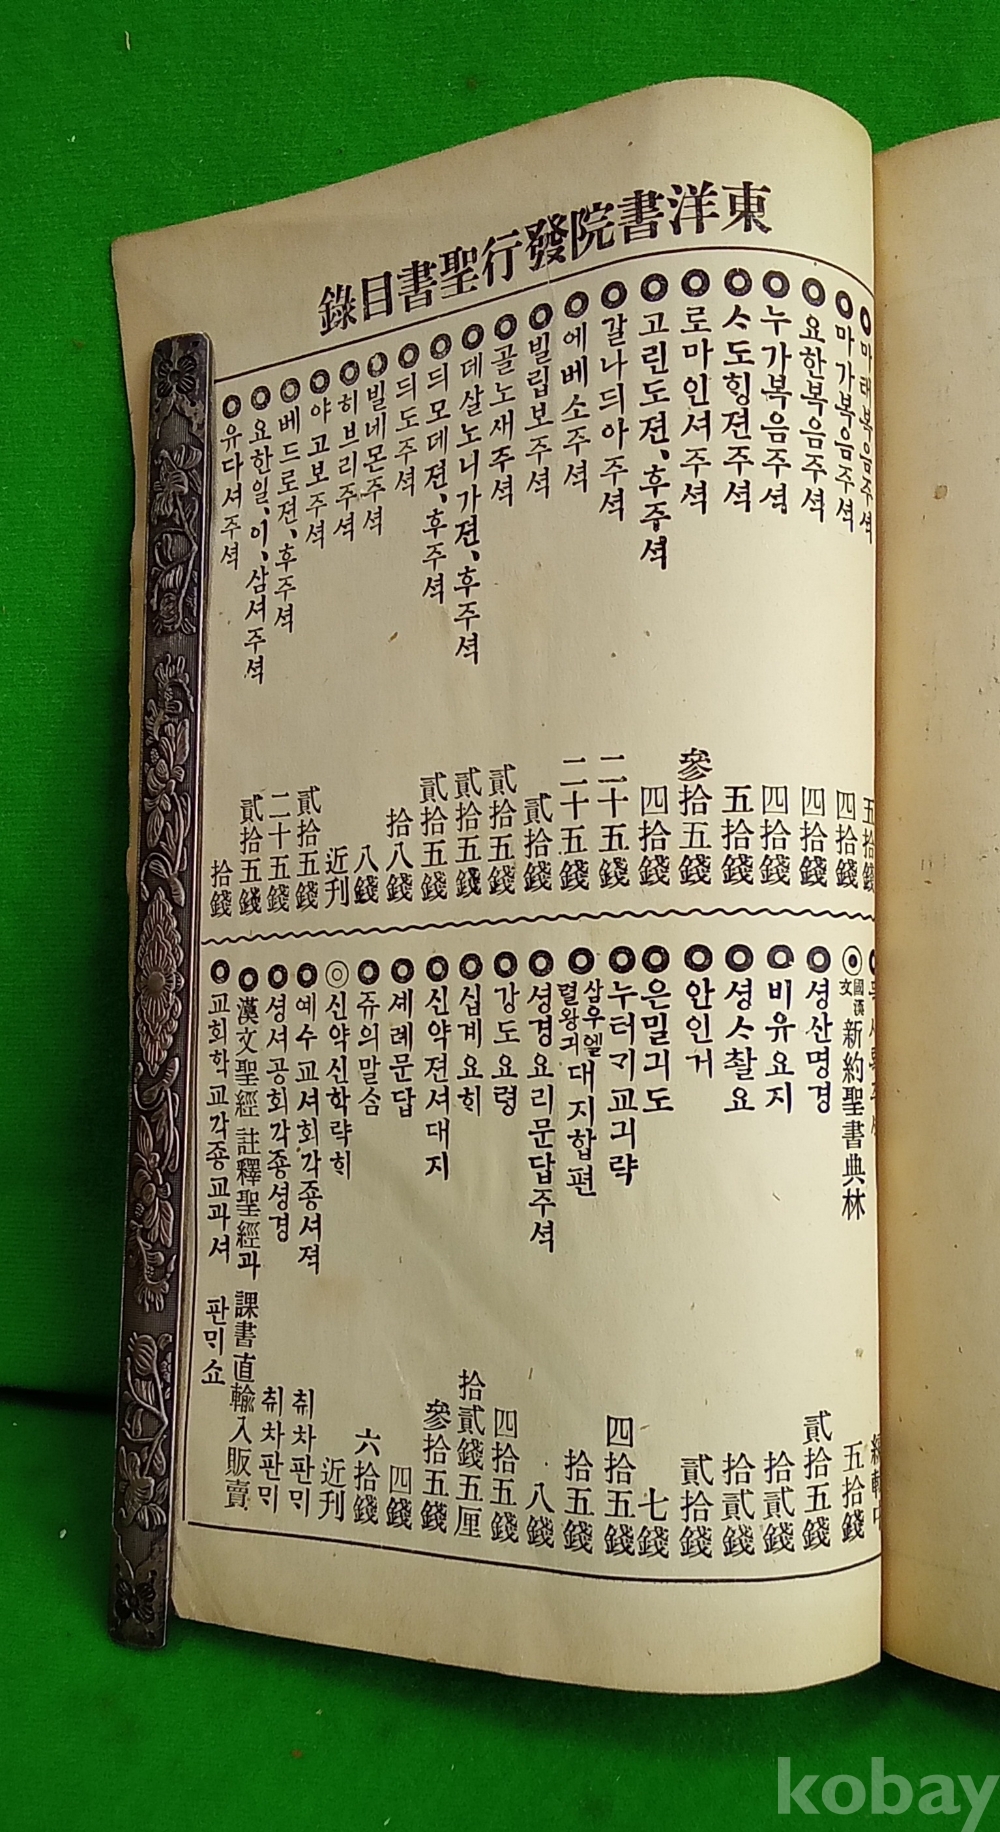 東洋書院發行聖書目錄
마태복음주셕 五拾錢
마가복음주셕 四拾錢
요한복음주셕 四拾錢
누가복음주셕 四拾錢
ᄉᆞ도ᄒᆡᆼ젼주셕 五拾錢
로마인셔주셕 參拾五錢
고린도젼、후주셕 四拾錢
갈나듸아주셕 二十五錢
에베소주셕 二十五錢
빌립보주셕 貳拾錢
골노새주셕 貳拾五錢
데살노니가젼、후주셕 貳拾五錢
듸모데젼、후주셕 貳拾五錢
듸도주셕 拾八錢
빌네몬주셕 八錢
히브리주셕 近刊
야고보주셕 貳拾五錢
베드로젼、후주셕 二十五錢
요한일、이、삼셔주셕 貳拾五錢
유다셔주셕 拾錢
國漢文 新約聖書典林 五拾錢
셩산명경 貳拾五錢
비유요지 拾貳錢
셩ᄉᆞ촬요 拾貳錢
안인거 貳拾錢
은밀긔도 七錢
누터긔교긔략 四拾五錢
삼우엘렬왕긔대지합편 拾五錢
셩경요리문답주셕 八錢
강도요령 四拾五錢
십계요ᄒᆡ 拾貳錢五厘
신약젼셔대지 參拾五錢
셰례문답 四錢
쥬의말ᄉᆞᆷ 六拾錢
신약신학략ᄒᆡ 近刊
예수교셔회각죵셔젹 츄차판ᄆᆡ
셩셔공회각죵셩경 츄차판ᄆᆡ
漢文聖經註釋聖經과課書直輸入販賣
교회학교각죵교과셔 판ᄆᆡ쇼
kobay